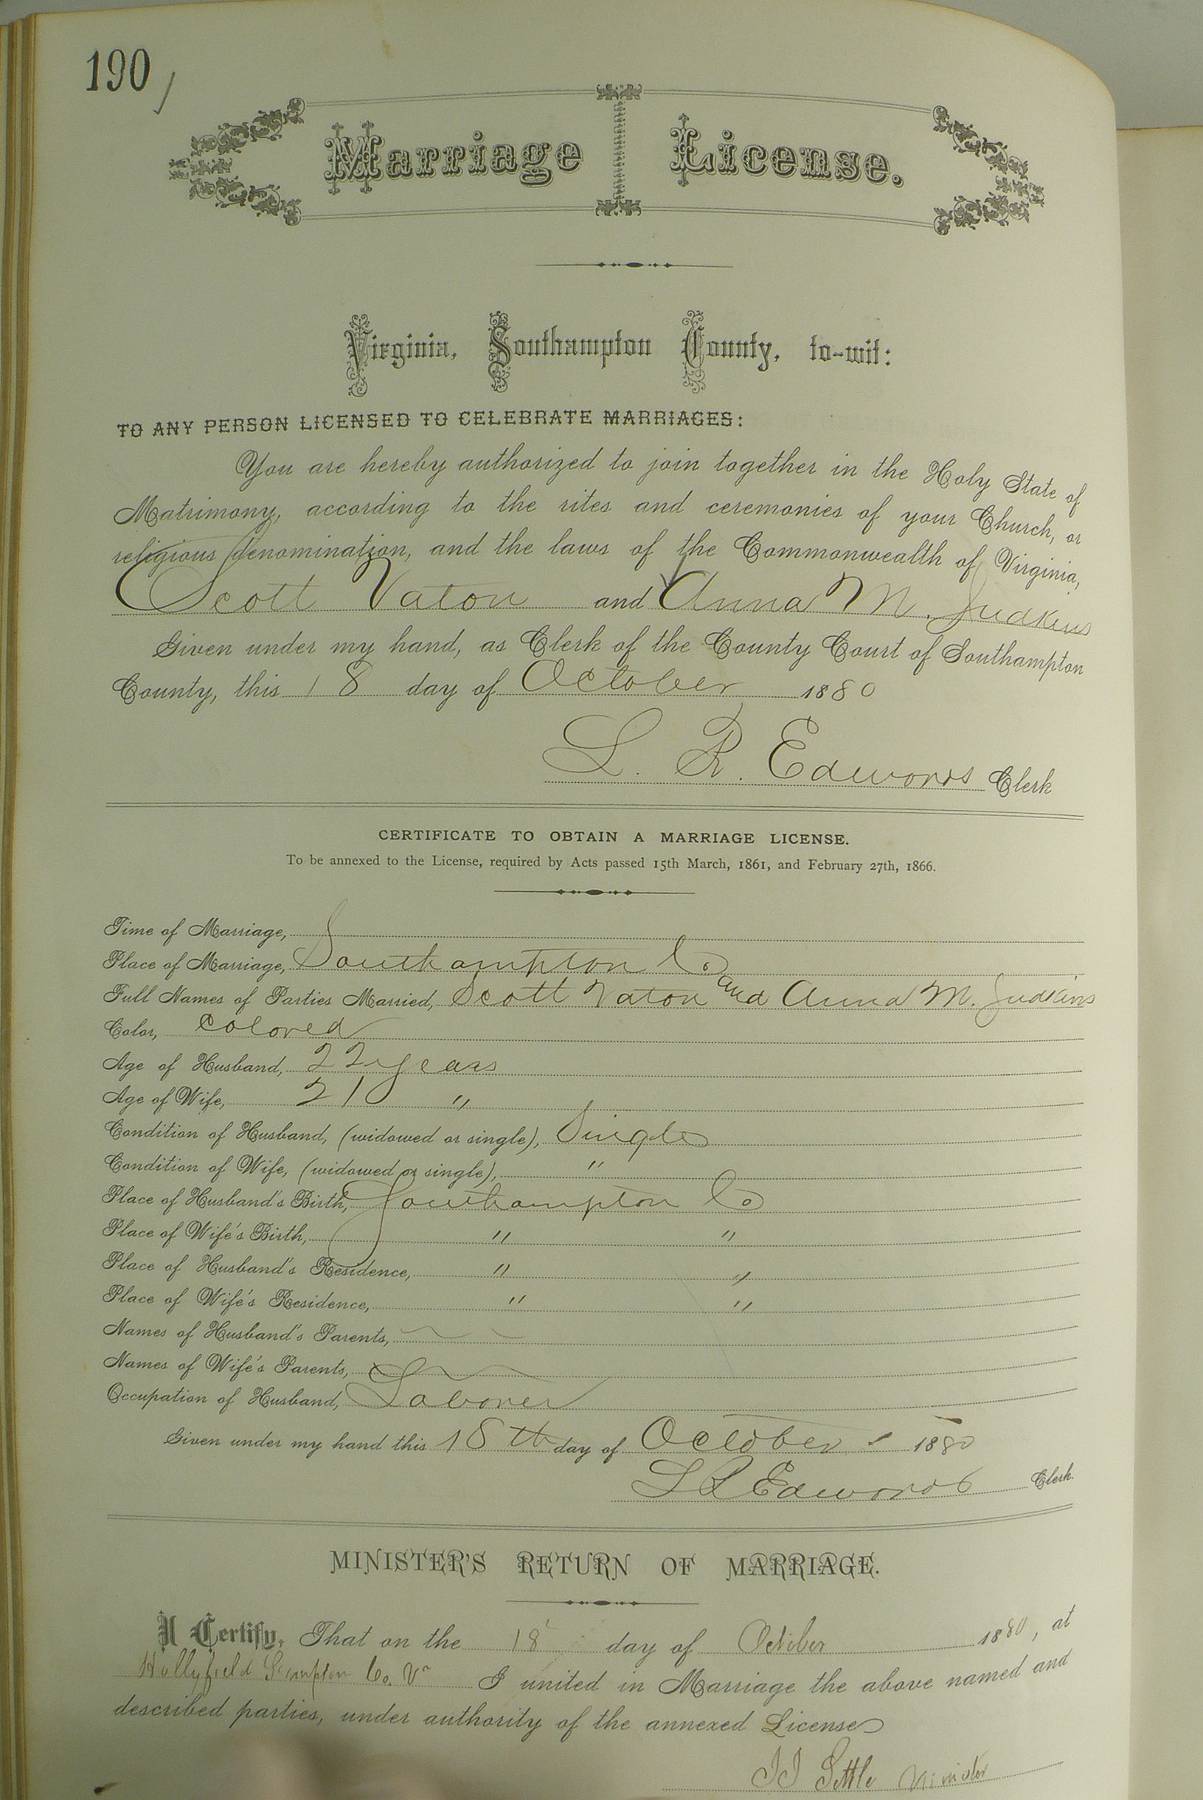 190
Marriage License.
Virginia, Southampton County, to-wit:
TO ANY PERSON LICENSED TO CELEBRATE MARRIAGES:
You are hereby authorized to join together in the Holy State of
Matrimony, according to the rites and ceremonies of your Church, or
religious denomination, and the laws of the Commonwealth of Virginia,
Scott Vaton and Anna M. Judkins
Given under my hand, as Clerk of the County Court of Southampton
County, this 18 day of October 1880
L. R. Edwards Clerk
CERTIFICATE TO OBTAIN A MARRIAGE LICENSE.
To be annexed to the License, required by Acts passed 15th March, 1861, and February 27th, 1866.
Time of Marriage,
Place of Marriage, Southampton Co
Full Names of Parties Married, Scott Vaton and Anna M. Judkins
Color, Colored
Age of Husband, 22 years
Age of Wife, 21 "
Condition of Husband, (widowed or single), Single
Condition of Wife, (widowed or single), "
Place of Husband's Birth, Southampton Co
Place of Wife's Birth, " "
Place of Husband's Residence, " "
Place of Wife's Residence, " "
Names of Husband's Parents,
Names of Wife's Parents,
Occupation of Husband, Laborer
Given under my hand this 18th day of October 1880
L R Edwards Clerk.
MINISTER'S RETURN OF MARRIAGE.
I Certify, That on the 18 day of October 1880, at
Hollyfield Co. Va I united in Marriage the above named and
described parties, under authority of the annexed License
JJ Settle Minister